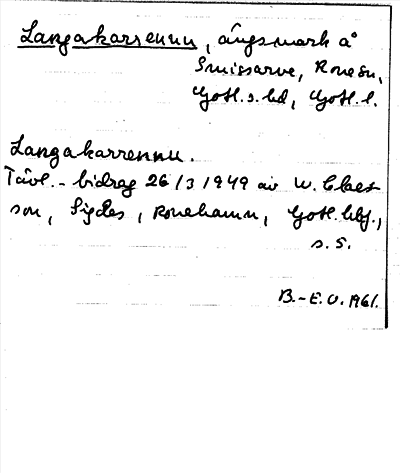 Langakarrennu, ängsmark å
Smissarve, Rone sn,
Gotl. s. hd, Gotl. l.
Langakarrennu.
Tävl.-bidrag 26/3 1949 av W. Claes-
son, Sigdes, Ronehamn, Gotl. hbf.,
s. 5.
B.-E. O. 1961.